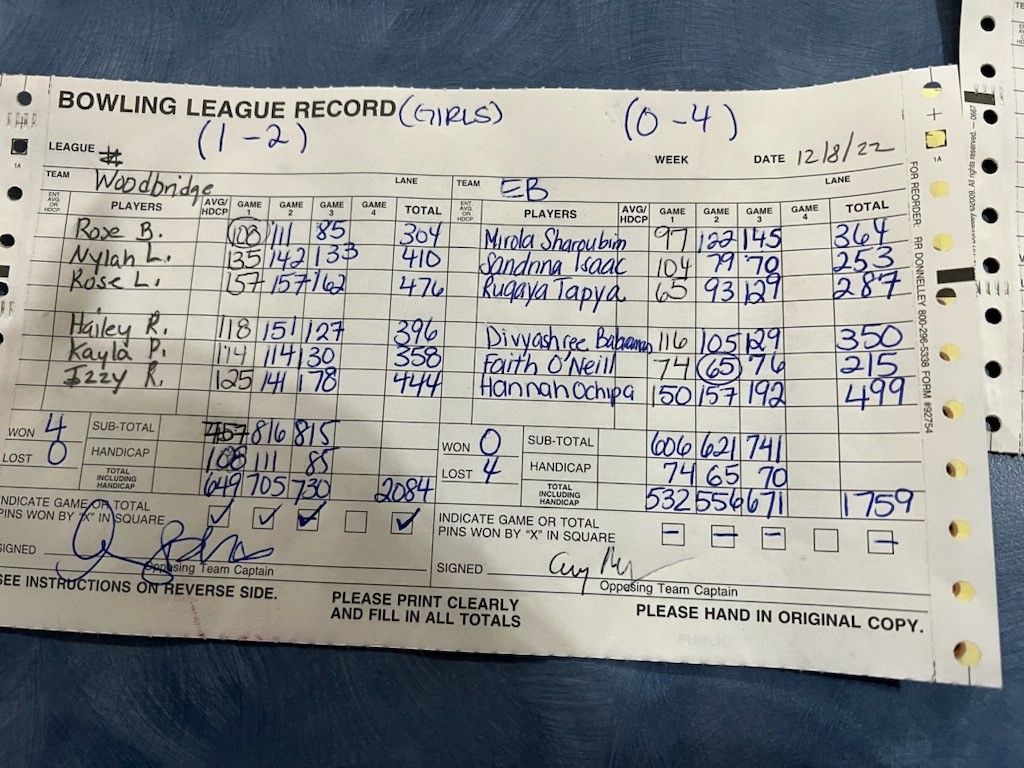 BOWLING LEAGUE RECORD (GIRLS)
(1-2) (0-4)
LEAGUE # WEEK DATE 12/8/22
TEAM Woodbridge LANE TEAM EB LANE
ENT. AVG. OR HDCP PLAYERS AVG/HDCP GAME 1 GAME 2 GAME 3 GAME 4 TOTAL ENT. AVG. OR HDCP PLAYERS AVG/HDCP GAME 1 GAME 2 GAME 3 GAME 4 TOTAL
Rose B. 108 111 85 304 Mirola Sharoubim 97 122 145 364
Nylah L. 135 142 133 410 Sandrina Isaac 104 79 70 253
Rose L. 157 157 162 476 Rugaya Tapya 65 93 129 287
Hailey R. 118 151 127 396 Divyashree 116 105 129 350
Kayla P. 114 114 130 358 Faith O'Neill 74 65 76 215
Izzy R. 125 141 178 444 Hannah Ochipa 150 157 192 499
WON 4 SUB-TOTAL 757 816 815 WON 0 SUB-TOTAL 606 621 741
LOST 0 HANDICAP 108 111 85 LOST 4 HANDICAP 74 65 70
TOTAL INCLUDING HANDICAP 649 705 730 2084 TOTAL INCLUDING HANDICAP 532 556 671 1759
INDICATE GAME OR TOTAL PINS WON BY "X" IN SQUARE ✓ ✓ ✓ ✓ INDICATE GAME OR TOTAL PINS WON BY "X" IN SQUARE - - - -
SIGNED SIGNED
Opposing Team Captain Opposing Team Captain
SEE INSTRUCTIONS ON REVERSE SIDE. PLEASE PRINT CLEARLY AND FILL IN ALL TOTALS PLEASE HAND IN ORIGINAL COPY.
1A
FOR REORDER: RR DONNELLEY 800-296-5338 FORM #92754